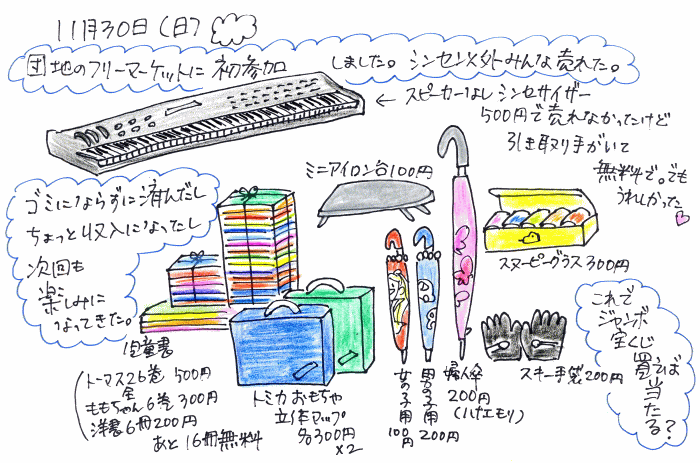 11月30日（日）
団地のフリーマーケットに初参加しました。シンセ以外みんな売れた。
← スピーカーなしシンセサイザー
500円で売れなかったけど
引き取り手がいて
無料で。でも
うれしかった
ミニアイロン台100円
ゴミにならずに済んだし
ちょっと収入になったし
次回も
楽しみに
なってきた。
スヌーピーグラス300円
これで
ジャンボ
宝くじ
買えば
当たる？
児童書
トーマス26巻 500円
ももちゃん全6巻300円
洋書6冊200円
あと16冊無料
トミカおもちゃ
立体マップ
各300円
×2
女の子用
100円
男の子用
200円
婦人傘
200円
(ハナエモリ)
スキー手袋200円